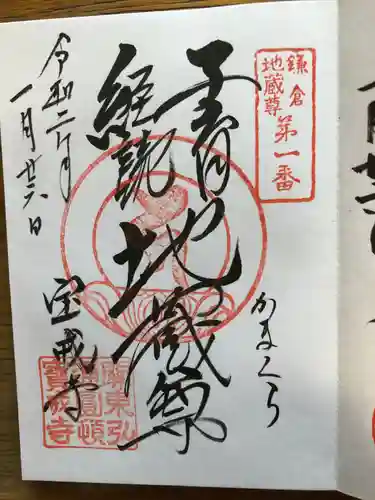 鎌倉
地蔵尊
第一番
かまくら
子育
経読
地蔵尊
宝戒寺
關東弘
圓頓
寶戒寺
令和二年
一月廿六日